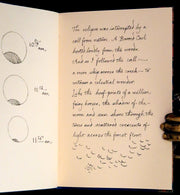 The eclipse was interrupted by a
call from nature. A Barred Owl
hooted loudly from the woods.
And as I followed the call —
across the creek — to
witness a celestial wonder.
Like the hoof-prints of a million
fairy horses, the shadow of the
moon and sun shone through the
trees and scattered crescents of
light across the forest floor.